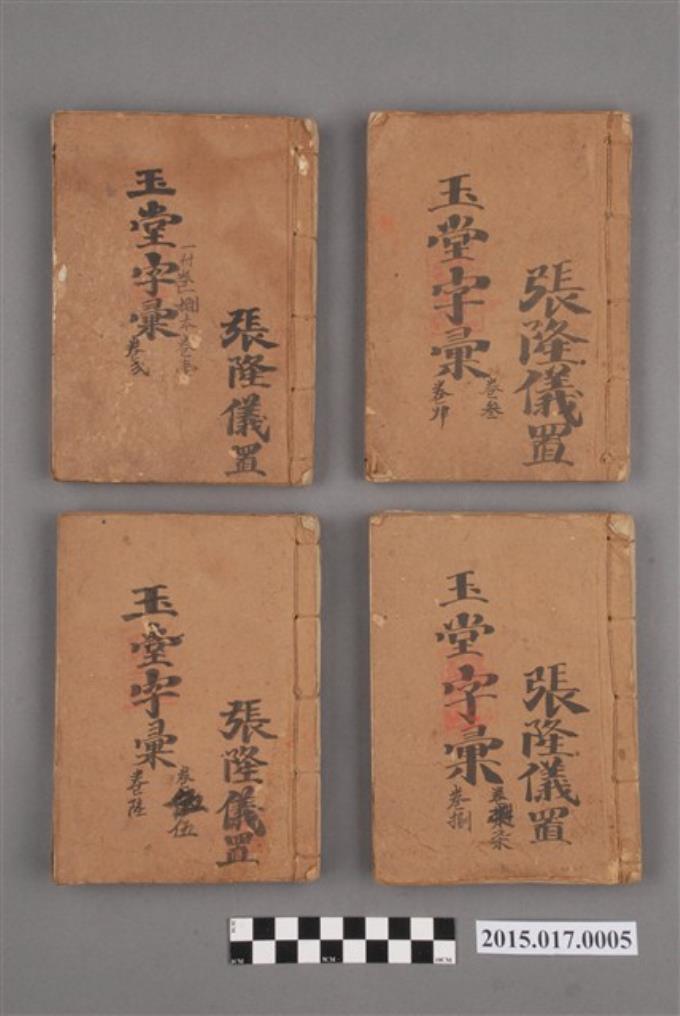 張隆儀置
一付四本卷壹
玉堂字彙
卷貳
張隆儀置
卷叁
玉堂字彙
卷肆
張隆儀置
卷伍
玉堂字彙
卷陸
張隆儀置
卷柒
玉堂字彙
卷捌
2015.017.0005